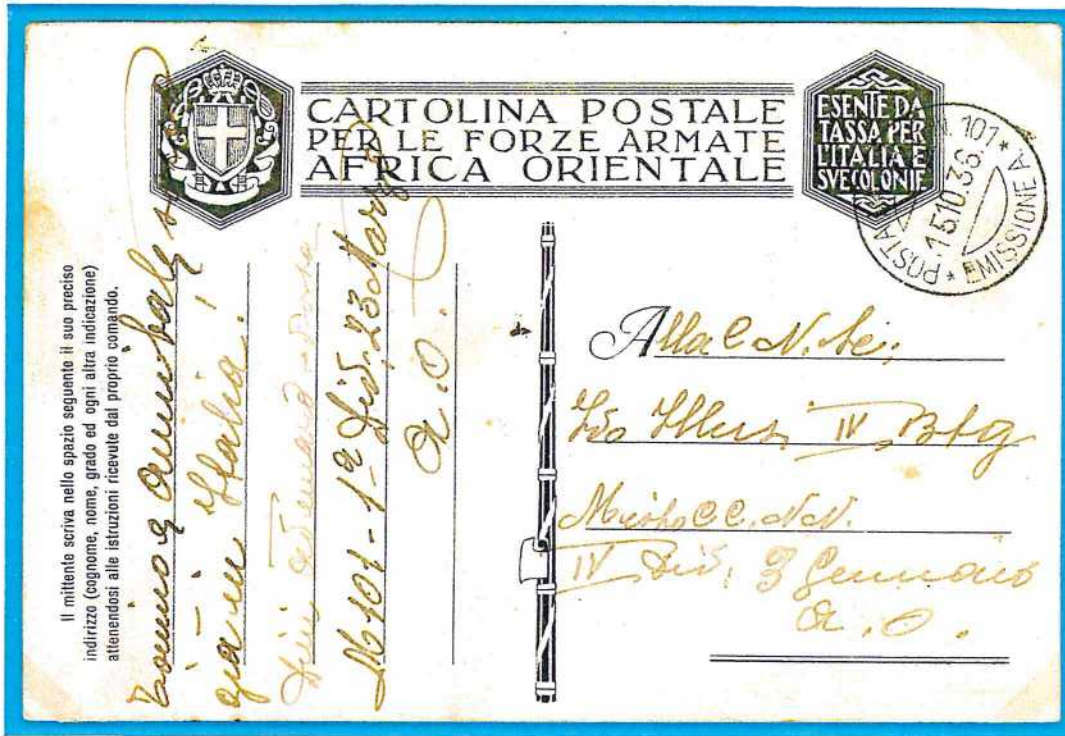 CARTOLINA POSTALE
PER LE FORZE ARMATE
AFRICA ORIENTALE
ESENTE DA
TASSA PER
L'ITALIA E
SVE COLONIE
POSTA 101
15.10.36
* EMISSIONE A *
Il mittente scriva nello spazio seguente il suo preciso
indirizzo (cognome, nome, grado ed ogni altra indicazione)
attenendosi alle istruzioni ricevute dal proprio comando.
già in Italia!
101 - 1ª Div. 23 Marzo
A.O.
Alla C.N. Sc.
IV Btg
Misto CC.NN.
IV Div. 3 Gennaio
A.O.